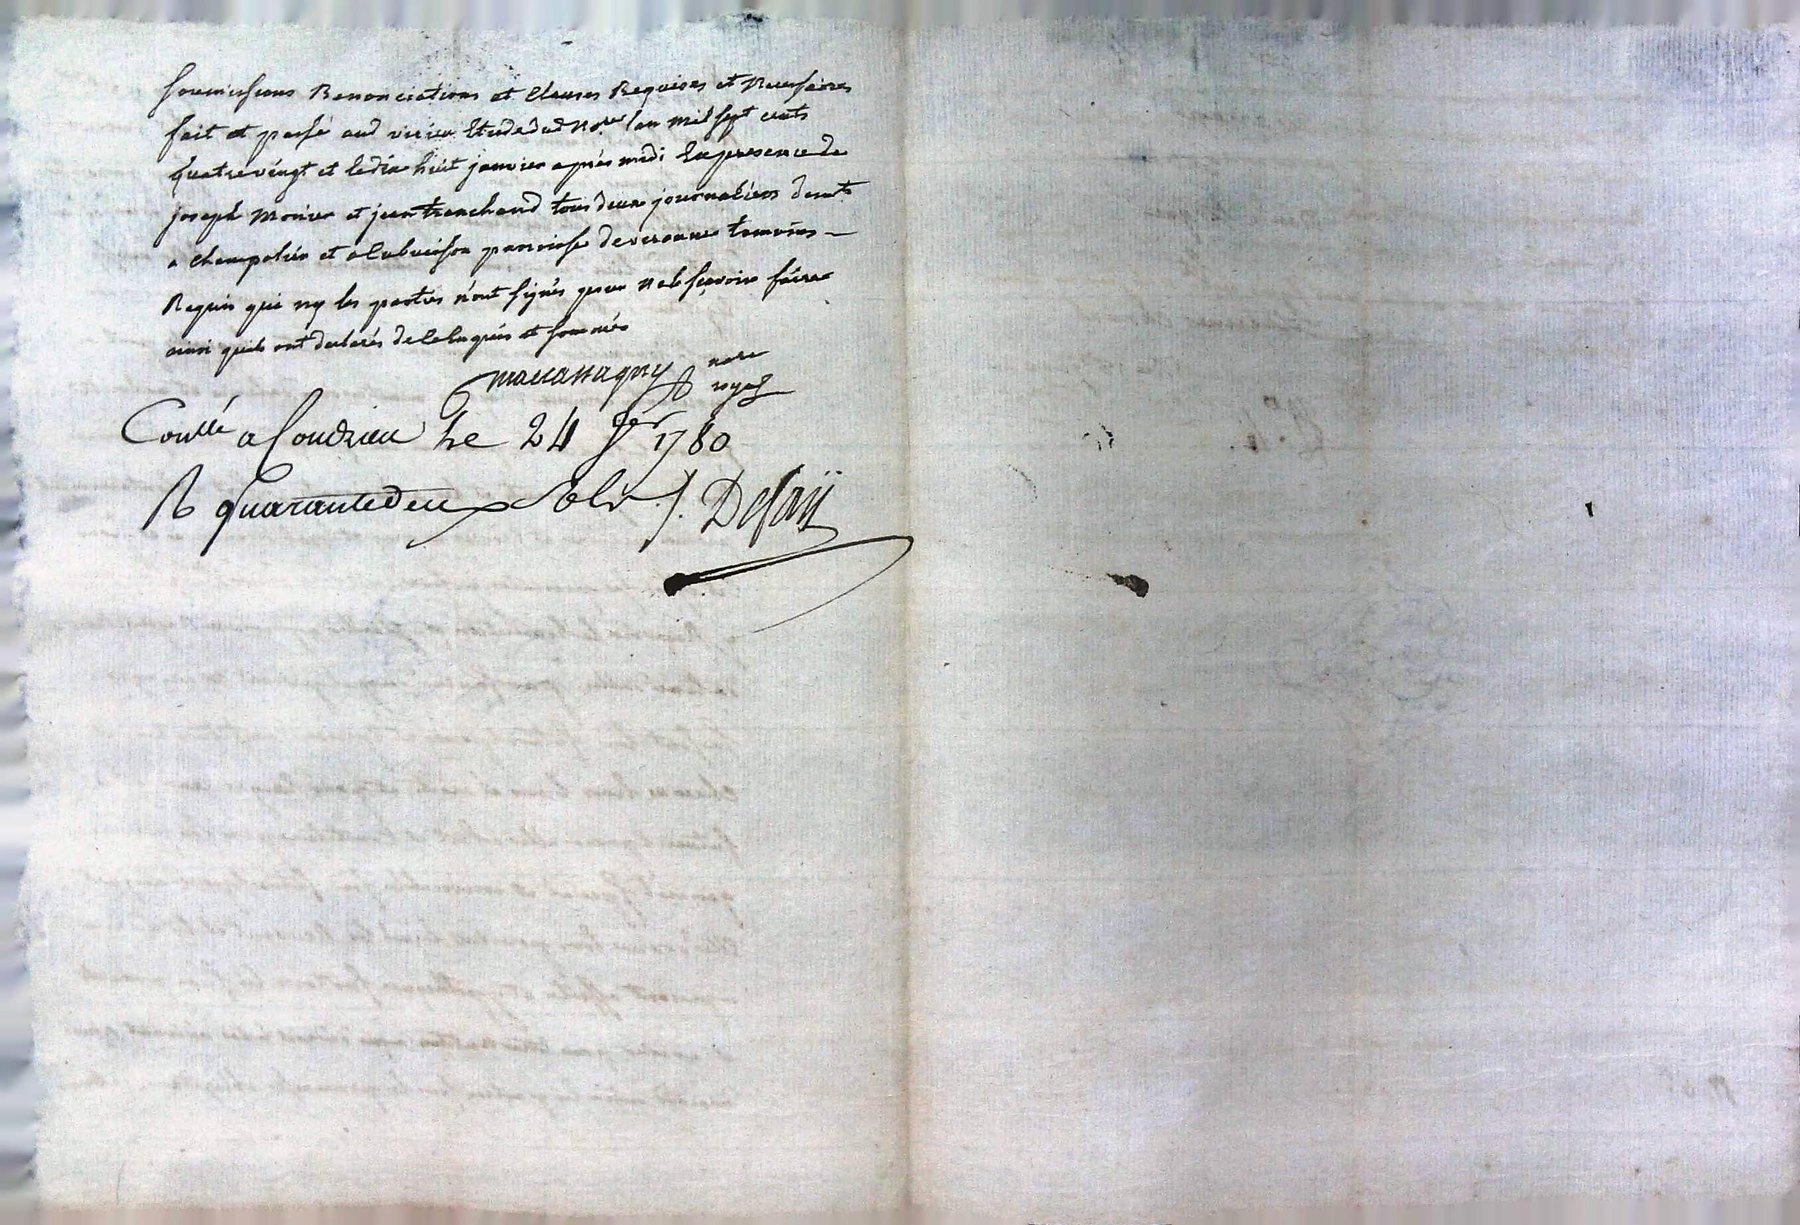 soumissions Renonciations et Clauses Requises et Necessaires
fait et passé aud virieu Etude dud No.re lan mil sept cents
quatre vingt et le dix huit janvier apres midi En presence de
joseph Monier et jean tranchand tous deux journaliers demts
a Champolien et a paroisse de veranne temoins
Requis qui ny les parties n'ont signés pour ne le sçavoir faire
ainsi quils ont declarés de ce Enquis et sommés
nore
royal
Conllé a Condrieu Le 24 Jer 1780
R quarantedeux sols J. Defaÿ